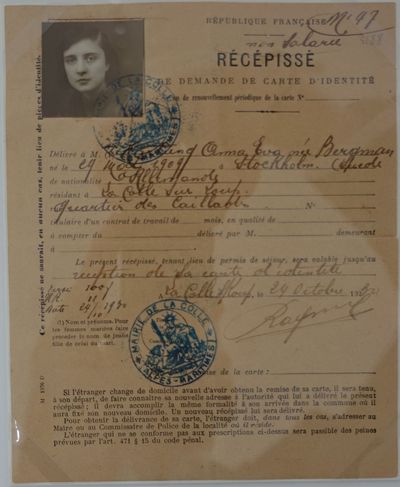 RÉPUBLIQUE FRANÇAISE Nº 97
non Salarié
RÉCÉPISSÉ
DE DEMANDE DE CARTE D'IDENTITÉ
de renouvellement périodique de la carte Nº
Délivré à M. Anna Eva née Bergman
né le 29 Mai 1909 à Stockholm (Suède
de nationalité Allemande
résidant à La Colle sur Loup
Quartier des Nº
titulaire d'un contrat de travail de mois, en qualité de
à compter du délivré par M. demeurant
à
Le présent récépissé, tenant lieu de permis de séjour, sera valable jusqu'au
réception de sa carte d'identité
A La Colle s/Loup, le 24 Octobre
100f
Date 24/10
(1) Nom et prénoms. Pour
les femmes mariées faire
précéder le nom de jeune
fille de celui du mari.
MAIRIE DE LA COLLE
ALPES-MARITIMES
MAIRIE DE LA COLLE
ALPES-MARITIMES
de la carte :
Ce récépissé ne saurait, en aucun cas tenir lieu de pièces d'identité.
Si l'étranger change de domicile avant d'avoir obtenu la remise de sa carte, il sera tenu,
à son départ, de faire connaître sa nouvelle adresse à l'autorité qui lui a délivré le présent
récépissé; il devra accomplir la même formalité à son arrivée dans la commune où il
aura fixé son nouveau domicile. Un nouveau récépissé lui sera délivré.
Pour obtenir la délivrance de sa carte, l'étranger doit, dans tous les cas, s'adresser au
Maire ou au Commissaire de Police de la localité où il réside.
L'étranger qui ne se conforme pas aux prescriptions ci-dessus sera passible des peines
prévues par l'art. 471 § 15 du code pénal.